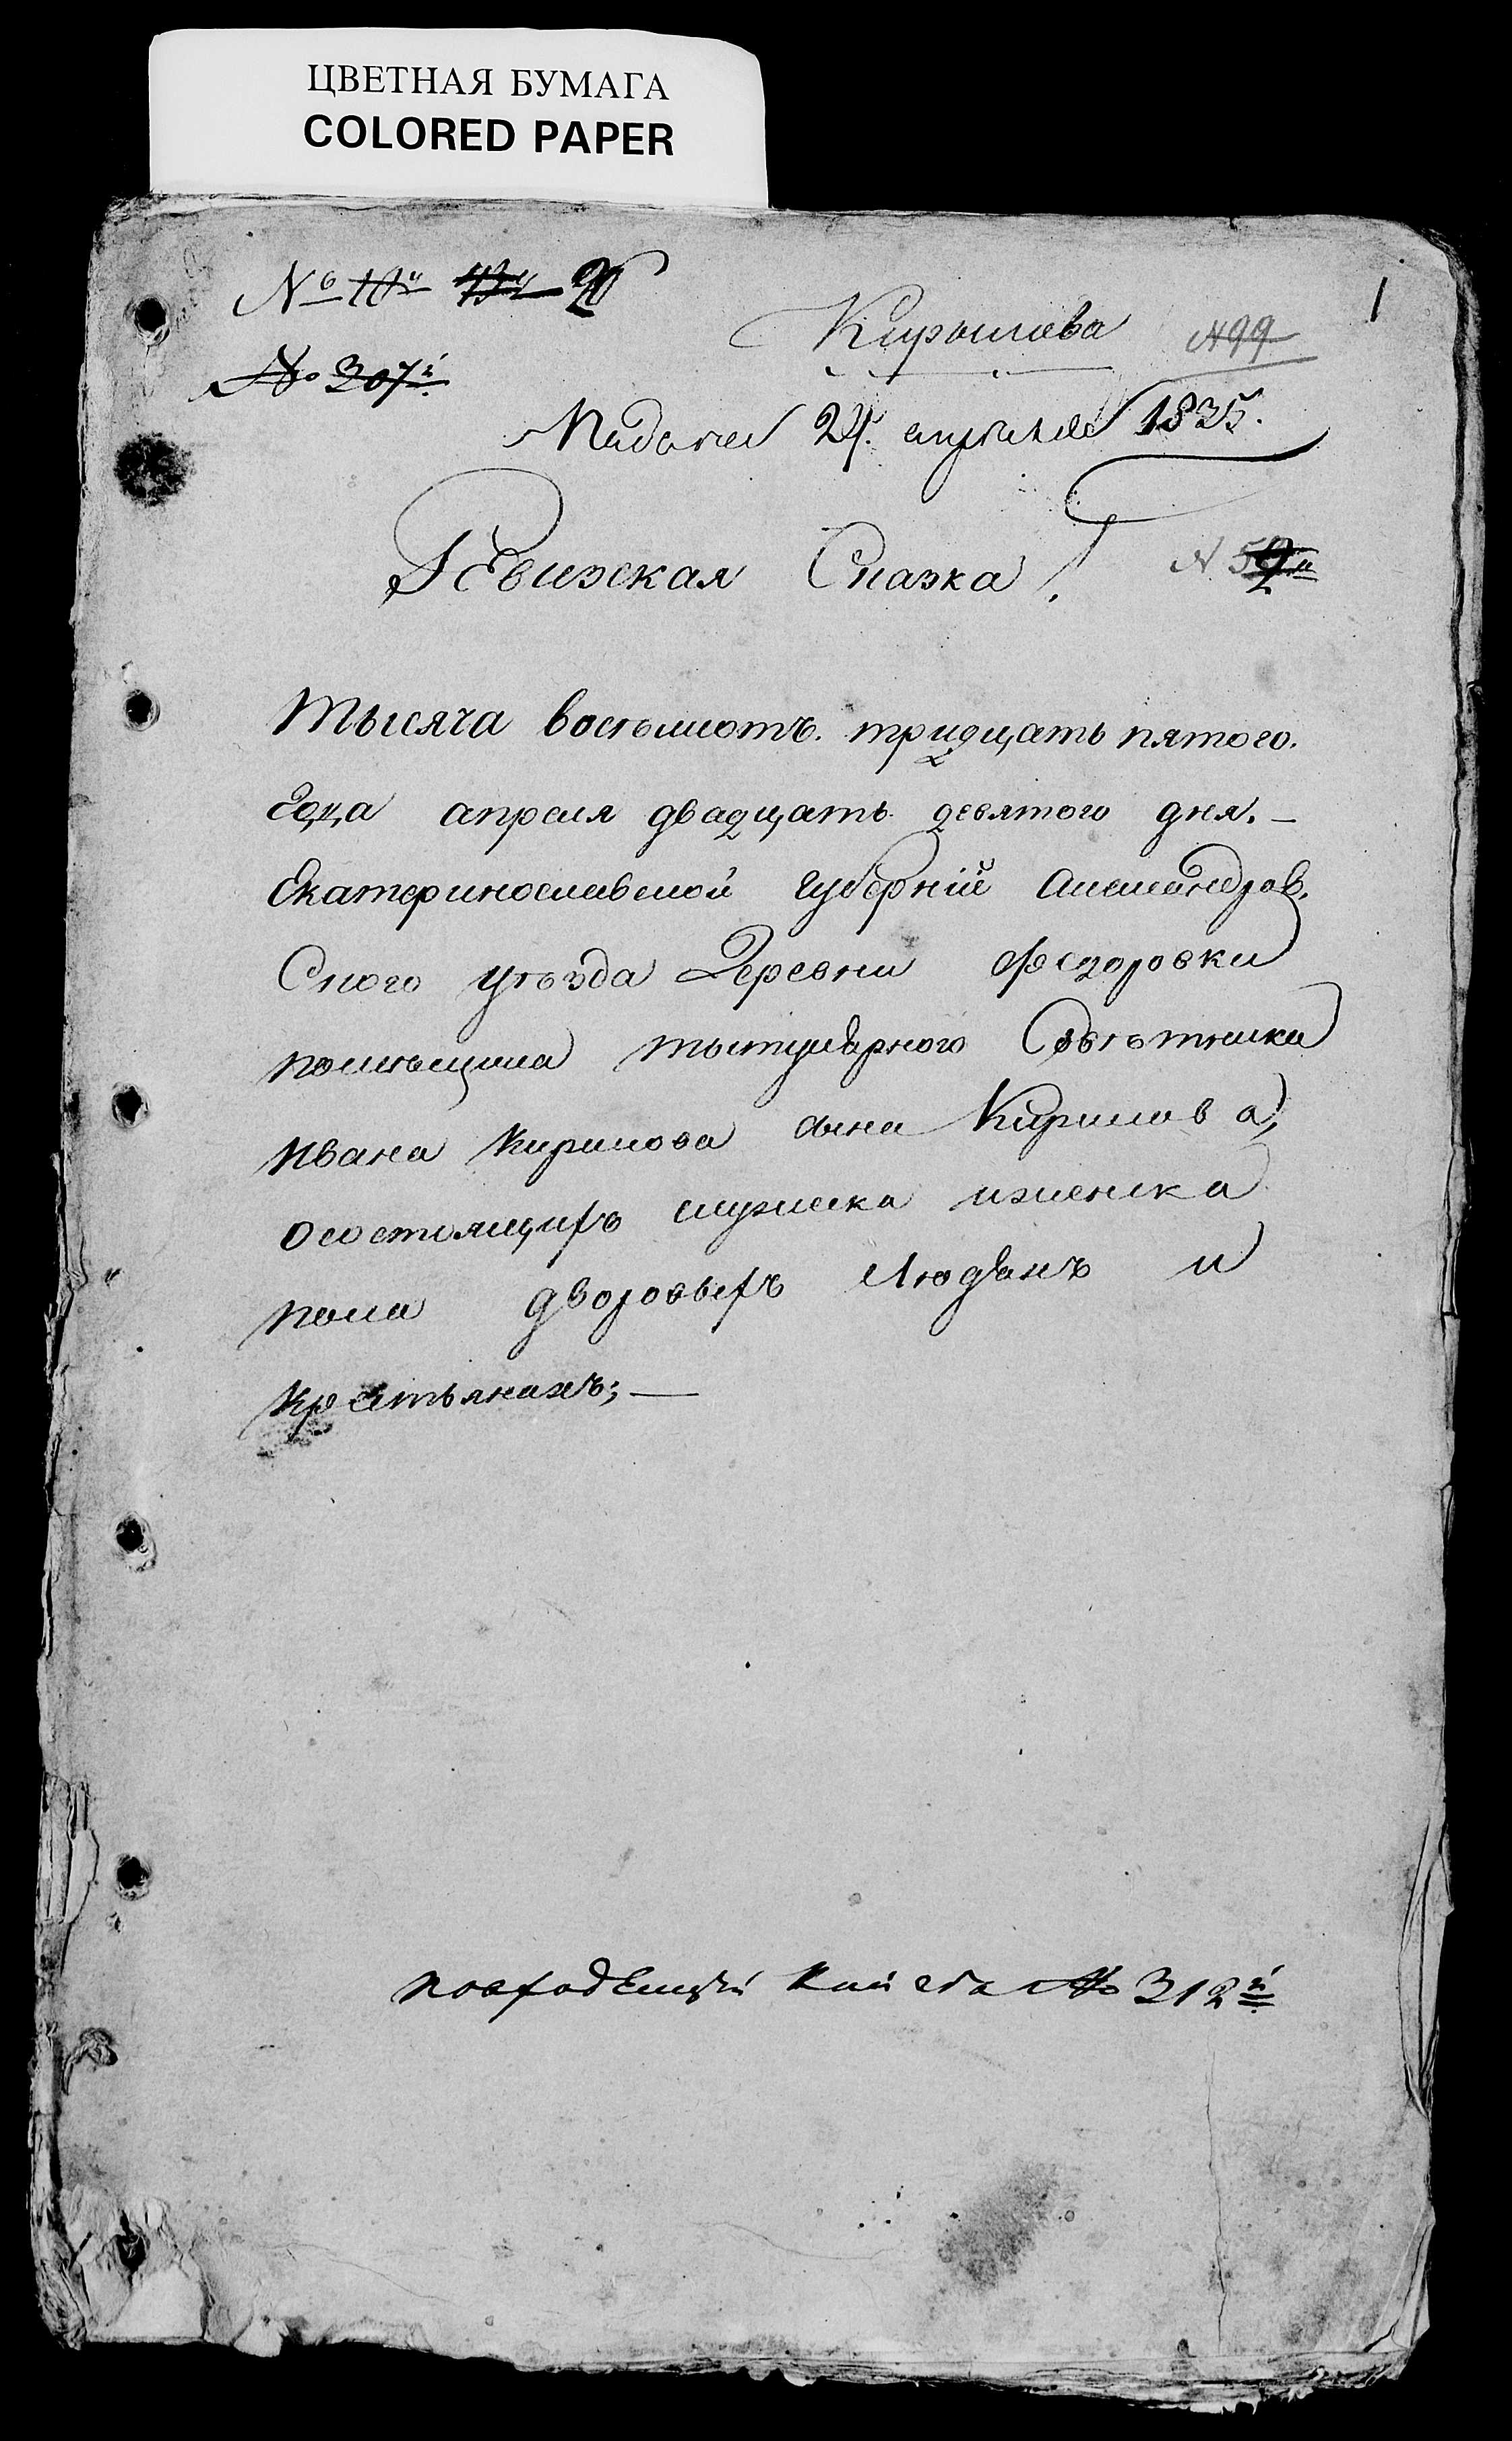 ЦВЕТНАЯ БУМАГА
COLORED PAPER
№ 10й 13й 20
1
Кирылова №99
№ 307й
Подана 24. апреля 1835.
Ревизская Сказка.
№ 59
Тысяча восемьсотъ. тридцать пятого.
Года апреля двадцать девятого дня.—
Екатеринославской губерніи Александров.
Ского уѣзда Деревни Федоровки
помѣщика тытулярного Совѣтника
Ивана Кирилова сына Кирилова,
осостоящихъ мужеска иженска
пола дворовыхъ Людяхъ и
Крестьянахъ; —
повходящей книга № 312й